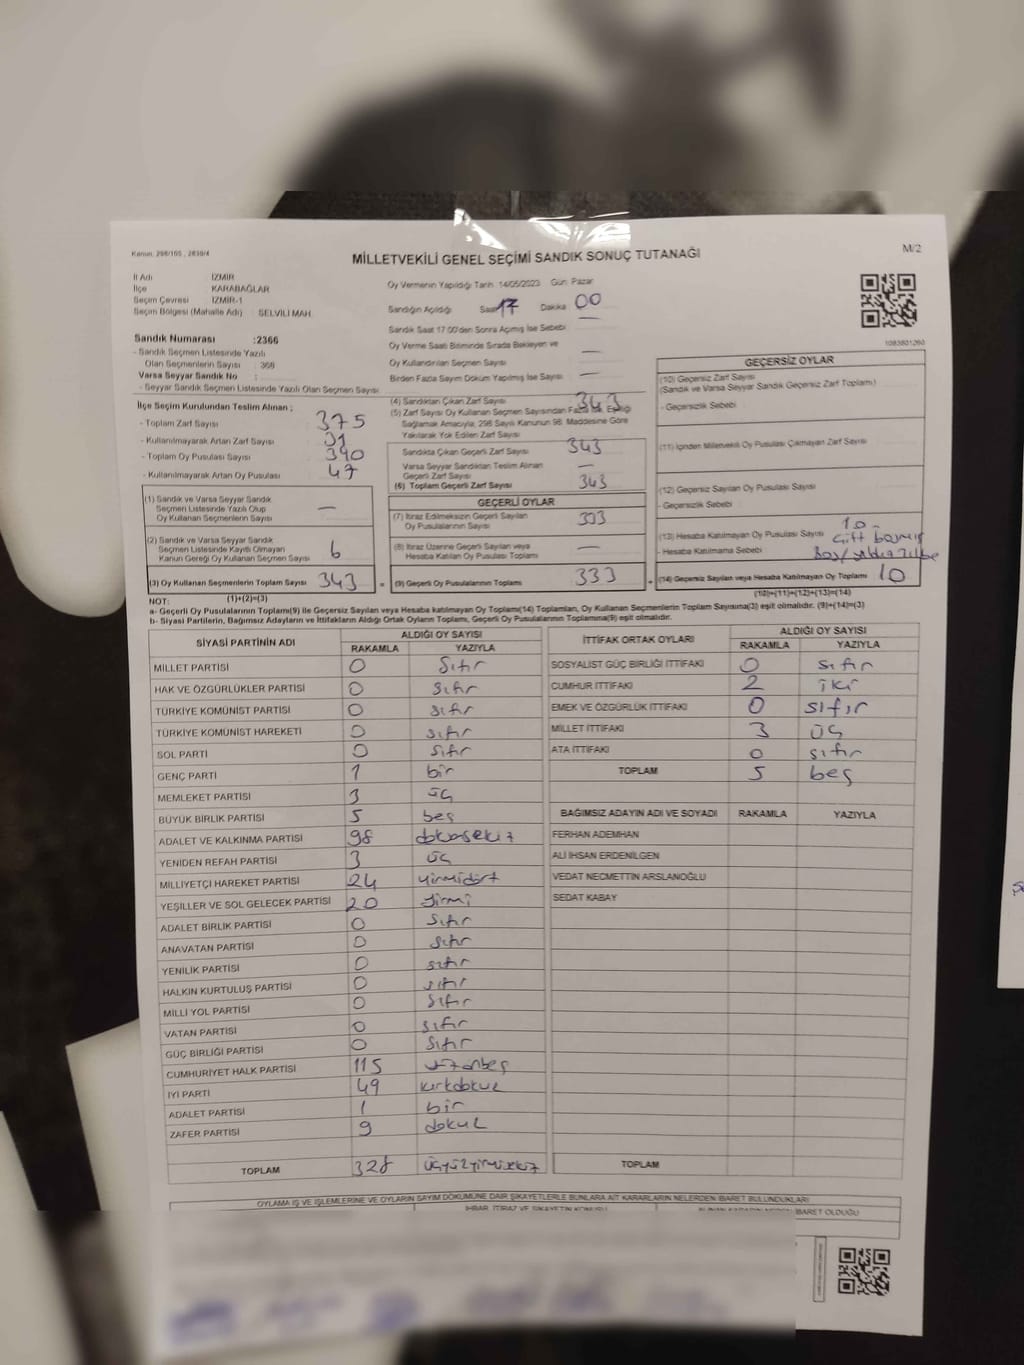 Kanun: 298/105 , 2839/4
MİLLETVEKİLİ GENEL SEÇİMİ SANDIK SONUÇ TUTANAĞI
M/2
İl Adı İZMİR
İlçe KARABAĞLAR
Seçim Çevresi İZMİR-1
Seçim Bölgesi (Mahalle Adı) : SELVİLİ MAH.
Sandık Numarası :2366
- Sandık Seçmen Listesinde Yazılı
Olan Seçmenlerin Sayısı : 368
Varsa Seyyar Sandık No :
- Seyyar Sandık Seçmen Listesinde Yazılı Olan Seçmen Sayısı
Oy Vermenin Yapıldığı Tarih 14/05/2023 Gün: Pazar
Sandığın Açıldığı Saat 17 Dakika 00
Sandık Saat 17:00'den Sonra Açılmış İse Sebebi —
Oy Verme Saati Bitiminde Sırada Bekleyen ve
Oy Kullandırılan Seçmen Sayısı —
Birden Fazla Sayım Döküm Yapılmış İse Sayısı —
1083801260
İlçe Seçim Kurulundan Teslim Alınan ;
- Toplam Zarf Sayısı 375
- Kullanılmayarak Artan Zarf Sayısı
- Toplam Oy Pusulası Sayısı 390
- Kullanılmayarak Artan Oy Pusulası 47
(1) Sandık ve Varsa Seyyar Sandık
Seçmen Listesinde Yazılı Olup
Oy Kullanan Seçmenlerin Sayısı —
(2) Sandık ve Varsa Seyyar Sandık
Seçmen Listesinde Kayıtlı Olmayan
Kanun Gereği Oy Kullanan Seçmen Sayısı 6
(3) Oy Kullanan Seçmenlerin Toplam Sayısı 343
(1)+(2)=(3)
(4) Sandıktan Çıkan Zarf Sayısı 343
(5) Zarf Sayısı Oy Kullanan Seçmen Sayısından Fazla İse, Eşitliği
Sağlamak Amacıyla, 298 Sayılı Kanunun 98. Maddesine Göre
Yakılarak Yok Edilen Zarf Sayısı
Sandıkta Çıkan Geçerli Zarf Sayısı 343
Varsa Seyyar Sandıktan Teslim Alınan
Geçerli Zarf Sayısı —
(6) Toplam Geçerli Zarf Sayısı 343
GEÇERLİ OYLAR
(7) İtiraz Edilmeksizin Geçerli Sayılan
Oy Pusulalarının Sayısı 333
(8) İtiraz Üzerine Geçerli Sayılan veya
Hesaba Katılan Oy Pusulası Toplamı —
= (9) Geçerli Oy Pusulalarının Toplamı 333
GEÇERSİZ OYLAR
(10) Geçersiz Zarf Sayısı
(Sandık ve Varsa Seyyar Sandık Geçersiz Zarf Toplamı)
- Geçersizlik Sebebi
(11) İçinden Milletvekili Oy Pusulası Çıkmayan Zarf Sayısı
(12) Geçersiz Sayılan Oy Pusulası Sayısı
- Geçersizlik Sebebi
(13) Hesaba Katılmayan Oy Pusulası Sayısı 10
- Hesaba Katılmama Sebebi
+ (14) Geçersiz Sayılan veya Hesaba Katılmayan Oy Toplamı 10
(10)+(11)+(12)+(13)=(14)
NOT:
a- Geçerli Oy Pusulalarının Toplamı(9) ile Geçersiz Sayılan veya Hesaba katılmayan Oy Toplamı(14) Toplamları, Oy Kullanan Seçmenlerin Toplam Sayısına(3) eşit olmalıdır. (9)+(14)=(3)
b- Siyasi Partilerin, Bağımsız Adayların ve İttifakların Aldığı Ortak Oyların Toplamı, Geçerli Oy Pusulalarının Toplamına(9) eşit olmalıdır.
SİYASİ PARTİNİN ADI ALDIĞI OY SAYISI
RAKAMLA YAZIYLA
MİLLET PARTİSİ 0 Sıfır
HAK VE ÖZGÜRLÜKLER PARTİSİ 0 sıfır
TÜRKİYE KOMÜNİST PARTİSİ 0 sıfır
TÜRKİYE KOMÜNİST HAREKETİ 0 sıfır
SOL PARTİ 0 sıfır
GENÇ PARTİ 1 bir
MEMLEKET PARTİSİ 3 üç
BÜYÜK BİRLİK PARTİSİ 5 beş
ADALET VE KALKINMA PARTİSİ 98
YENİDEN REFAH PARTİSİ 3 üç
MİLLİYETÇİ HAREKET PARTİSİ 24 yirmidört
YEŞİLLER VE SOL GELECEK PARTİSİ 20 yirmi
ADALET BİRLİK PARTİSİ 0 sıfır
ANAVATAN PARTİSİ 0 sıfır
YENİLİK PARTİSİ 0 sıfır
HALKIN KURTULUŞ PARTİSİ 0 sıfır
MİLLİ YOL PARTİSİ 0 sıfır
VATAN PARTİSİ 0 sıfır
GÜÇ BİRLİĞİ PARTİSİ 0 sıfır
CUMHURİYET HALK PARTİSİ 115 yüzonbeş
İYİ PARTİ 49 kırkdokuz
ADALET PARTİSİ 1 bir
ZAFER PARTİSİ 9 dokuz
TOPLAM 328 üçyüzyirmisekiz
İTTİFAK ORTAK OYLARI ALDIĞI OY SAYISI
RAKAMLA YAZIYLA
SOSYALİST GÜÇ BİRLİĞİ İTTİFAKI 0 sıfır
CUMHUR İTTİFAKI 2 iki
EMEK VE ÖZGÜRLÜK İTTİFAKI 0 sıfır
MİLLET İTTİFAKI 3 üç
ATA İTTİFAKI 0 sıfır
TOPLAM 5 beş
BAĞIMSIZ ADAYIN ADI VE SOYADI RAKAMLA YAZIYLA
FERHAN ADEMHAN
ALİ İHSAN ERDENİLGEN
VEDAT NECMETTİN ARSLANOĞLU
SEDAT KABAY
TOPLAM
OYLAMA İŞ VE İŞLEMLERİNE VE OYLARIN SAYIM DÖKÜMÜNE DAİR ŞİKAYETLERLE BUNLARA AİT KARARLARIN NELERDEN İBARET BULUNDUKLARI
İHBAR, İTİRAZ VE ŞİKAYETİN KONUSU